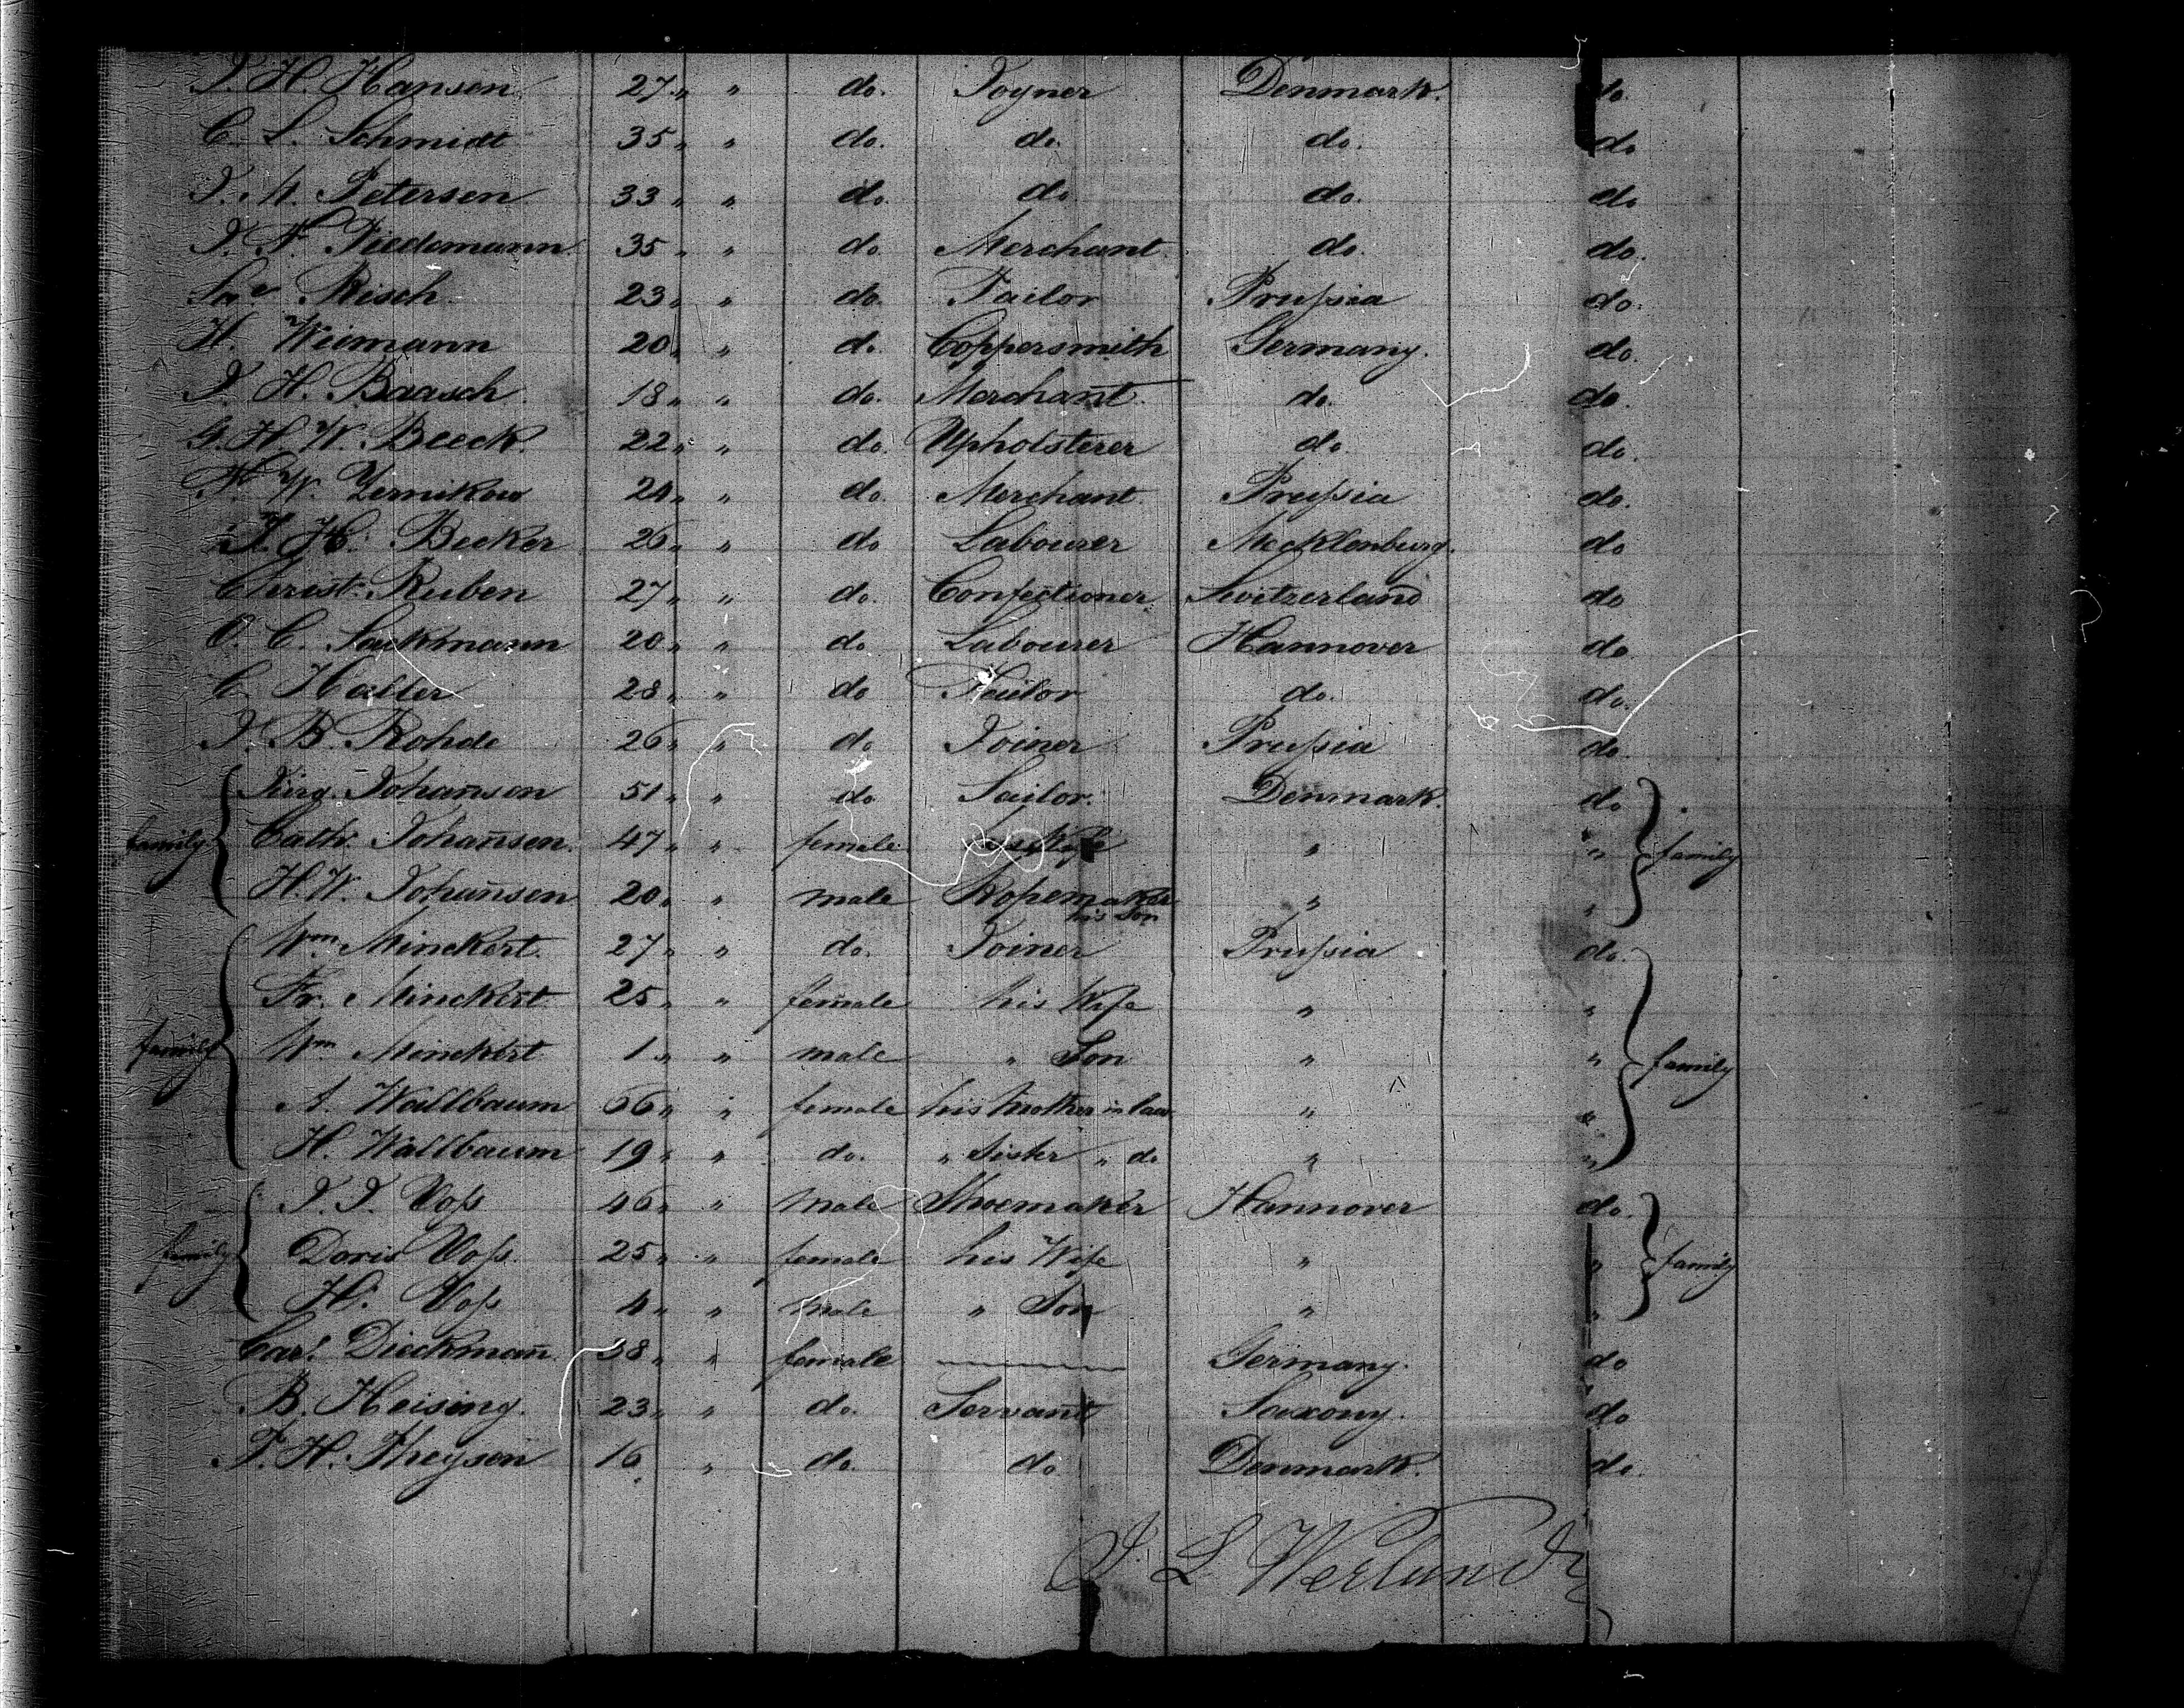 J. H. Hansen 27 " " do. Joyner Denmark. do.
C. L. Schmidt 35 " " do. do. do. do
J. M. Petersen 33 " " do. do do. do
J. F. Tiedemann 35 " " do. Merchant do. do.
Risch 23 " " do. Tailor Prussia do.
H. Wiemann 20 " " do. Coppersmith Germany. do.
J. H. Baasch 18 " " do. Merchant do. do.
G. H. W. Beeck. 22 " " do. Upholsterer do. do.
W. Zernikow 24 " " do. Merchant Prussia do.
J. H. Becker 26 " " do Labourer Mecklenburg. do
Christ. Ruben 27 " " do. Confectioner Switzerland do
O. C. Sackmann 20 " " do Labourer Hannover do
C. Haller 28 " " do Tailor do. do.
J. B. Rohde 26 " " do Joiner Prussia do.
Jürg. Johansen 51 " " do Sailor. Denmark. do
family Cath. Johansen. 47 " " female his Wife " " family
H. W. Johansen 20 " " male Ropemaker " "
his Son
Wm Minckert. 27 " " do. Joiner Prussia do.
Fr. Minckert 25 " " female his Wife " "
family Wm Minckert 1 " " male " Son " " family
A. Wallbaum 66 " " female his Mother in law " "
H. Wallbaum 19 " " do. " Sister " do " "
J. J. Voss 46 " " male Shoemaker Hannover do.
family Doris Voss. 25 " " female his Wife " " family
H. Voss 4 " " male " Son " "
Carl. Dieckmann. 38 " " female Germany. do
B. Heising. 23 " " do. Servant Saxony. do
F. H. Theysen 16 " do. do Denmark. do.
J. L. Werlund